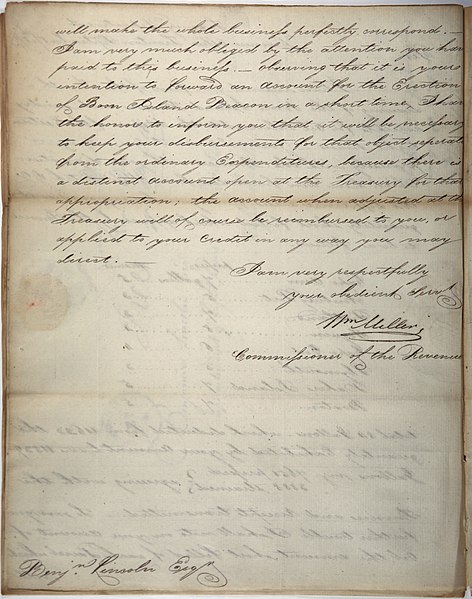 will make the whole business perfectly correspond. —
I am very much obliged by the attention you have
paid to this business. — observing that it is your
intention to forward an account for the Erection
of Boon Island Beacon in a short time, I have
the honor to inform you that it will be necessary
to keep your disbursements for that object seperate
from the ordinary Expenditures, because there is
a distinct account open at the Treasury for that
appropriation; the account when adjusted at the
Treasury will of course be reimbursed to you, or
applied to your credit in any way you may
direct.
I am very respectfully
your obedient Servt
Wm Miller,
Commissioner of the Revenue
Benjn Lincoln Esqr